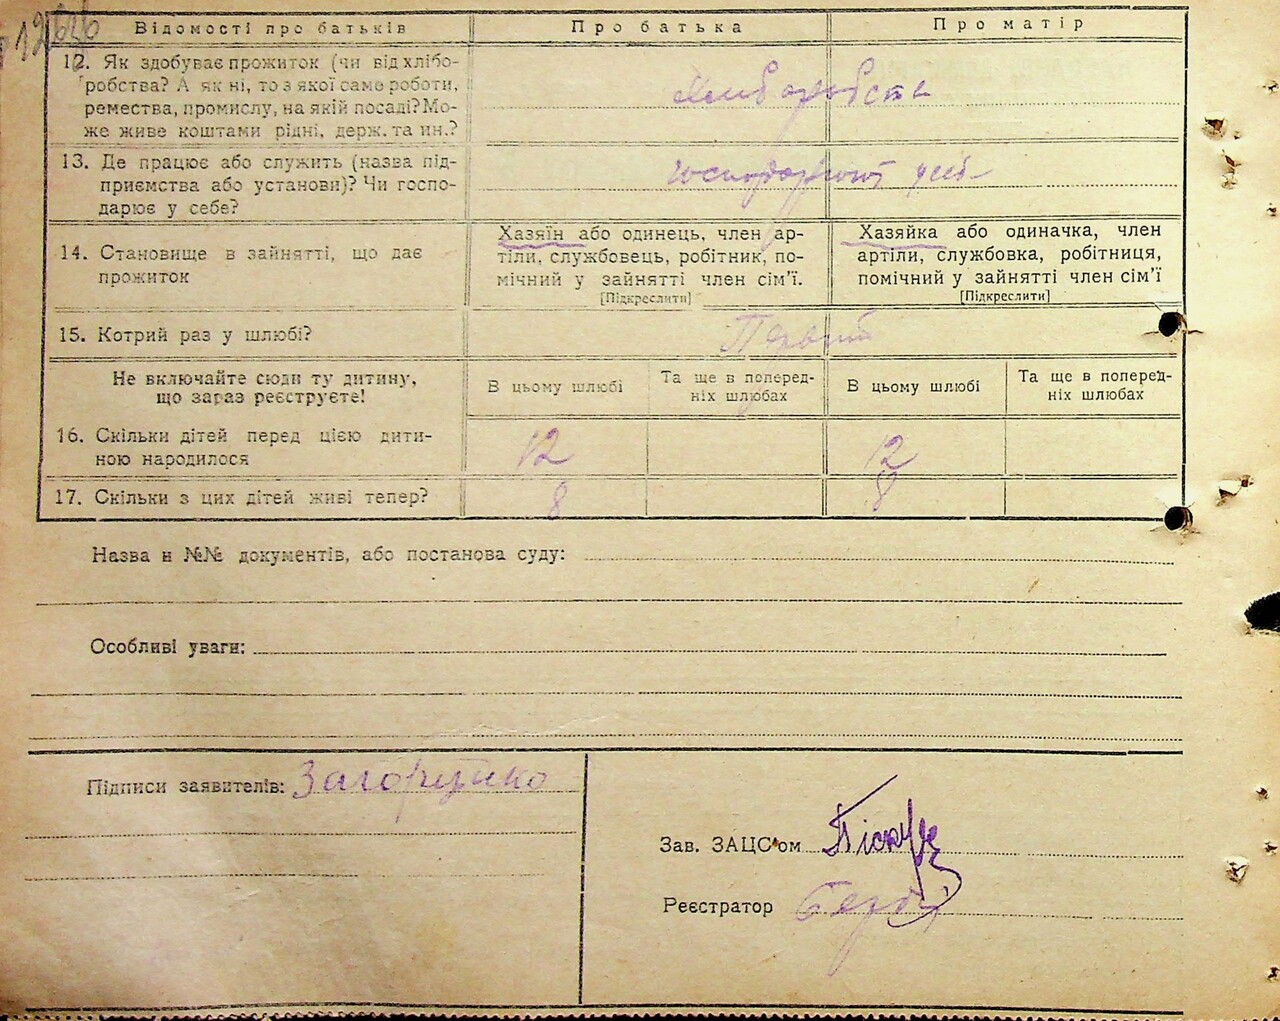 Відомості про батьків
Про батька
Про матір
12. Як здобуває прожиток (чи від хлібо-
робства? А як ні, то з якої саме роботи,
ремества, промислу, на якій посаді? Мо-
же живе коштами рідні, держ. та ин.?
13. Де працює або служить (назва під-
приємства або установи)? Чи госпо-
дарює у себе?
14. Становище в зайнятті, що дає
прожиток
Хазяїн або одинець, член ар-
тіли, службовець, робітник, по-
мічний у зайнятті член сім'ї.
[Підкреслити]
Хазяйка або одиначка, член
артіли, службовка, робітниця,
помічний у зайнятті член сім'ї
[Підкреслити]
15. Котрий раз у шлюбі?
Первий
Не включайте сюди ту дитину,
що зараз реєструєте!
В цьому шлюбі
Та ще в поперед-
ніх шлюбах
В цьому шлюбі
Та ще в поперед-
ніх шлюбах
16. Скільки дітей перед цією дити-
ною народилося
12
12
17. Скільки з цих дітей живі тепер?
8
8
Назва и №№ документів, або постанова суду:
Особливі уваги:
Підписи заявителів: Загоруйко
Зав. ЗАЦС'ом
Реєстратор